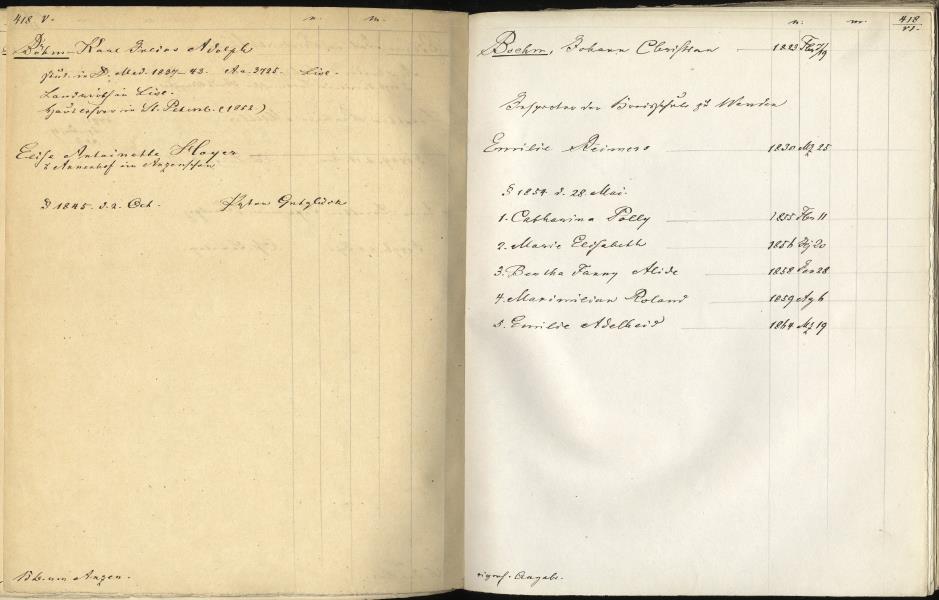 418 V.
n.
m.
Böhm Karl Julius Adolph
stud. in D. Med. 1837–43. A.a. 3725. Livl.
Landwirth in Livl.
Hauslehrer in St. Petersb. (1852)
Elise Antoinette Hoyer
z. Annenhof im Anzenschen
1845. d. 2. Oct.
Kb. von Anzen.
n.
m.
418
VI.
Boehm, Johann Christian 1823 Fbr 7/19
Inspector der Kreisschule zu Wenden
Emilie Reimers 1830 Mz 25
§ 1854 d. 28 Mai.
1. Catharina Polly 1855 Fbr 11
2. Marie Elisabeth 1856 20
3. Bertha Fanny Alide 1858 Jan 28
4. Maximilian Roland 1859 Ag 6
5. Emilie Adelheid 1864 Mz 19
eigenh. Angabe.